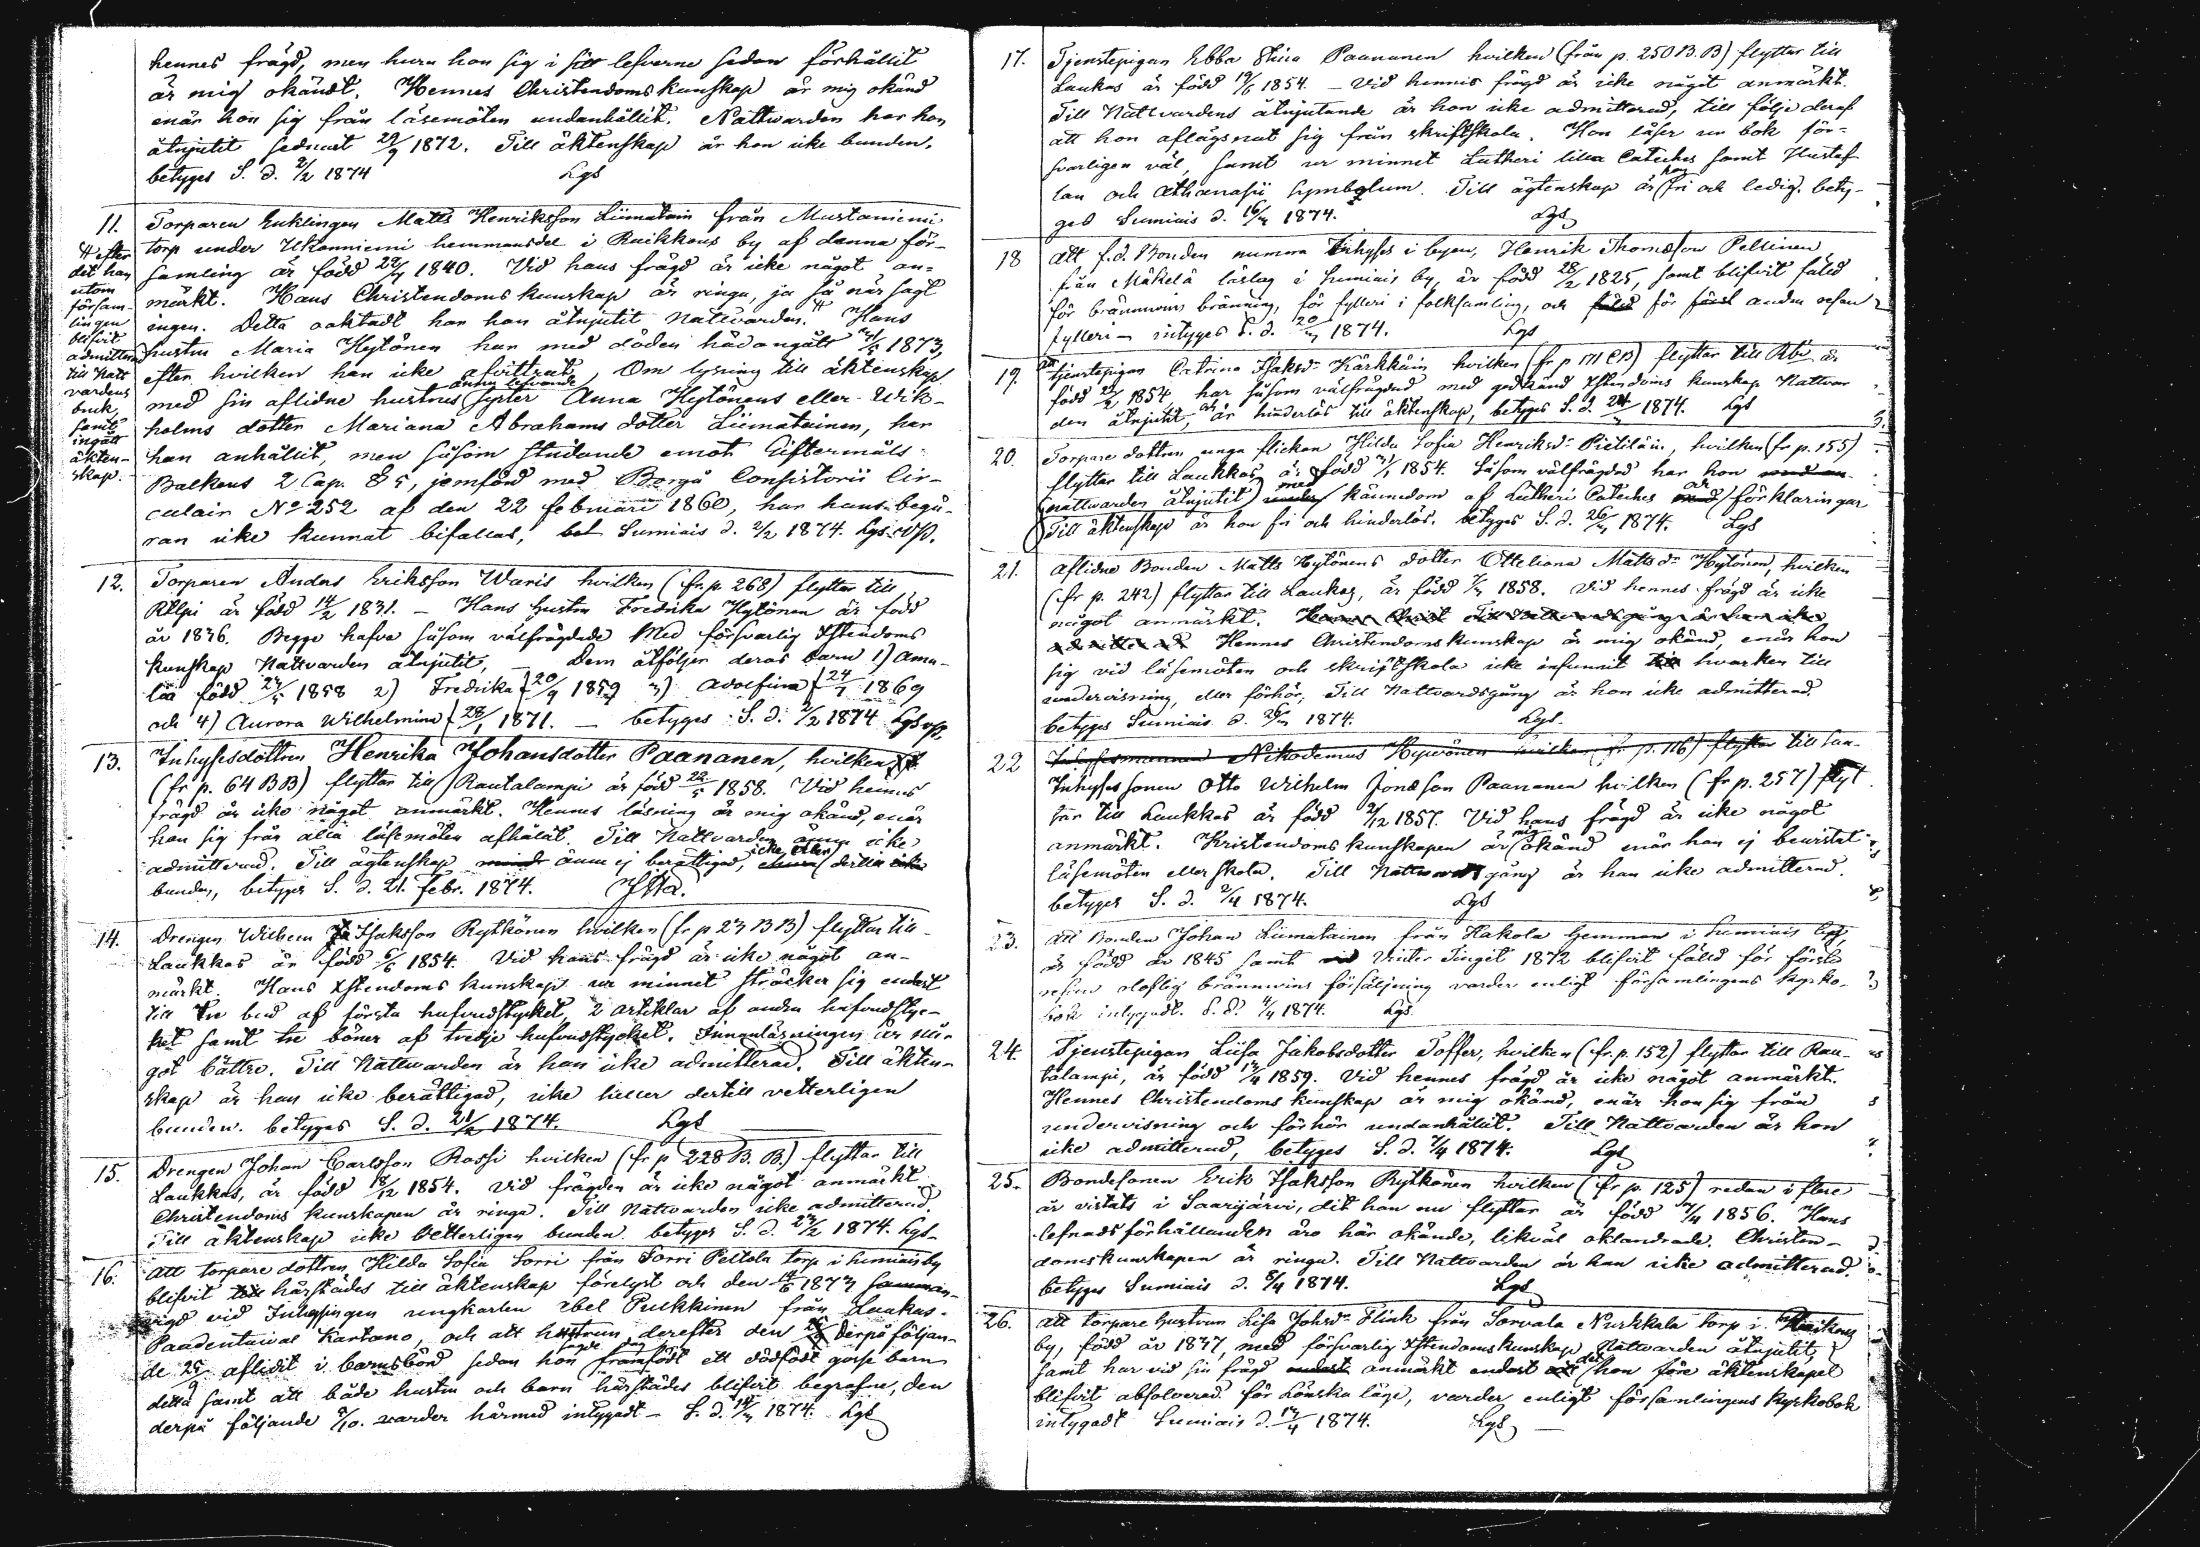 hennes frägd, men huru hon sig i sitt lefverne sedan förhållit
är mig okändt. Hennes Christendoms kunskap är mig okänd
enär hon sig från läsemöten undanhållit. Nattwarden har hon
åtnjutit sednast 29/9 1872. Till äktenskap är hon icke bunden.
betyges S. d. 2/2 1874 Lgs
11. Torparen Enklingen Matts Henriksson Liimatain från Mustaniemi
torp under Ukonniemi hemmansdel i Raikkaus by af denna för-
samling är född 1840. Vid hans frägd är icke något an-
märkt. Hans Christendoms kunskap är ringa, ja så när sagt
ingen. Detta oaktadt har han åtnjutit nattvarden. # Hans
hustru Maria Hytönen har med döden hädangått 1873,
efter hvilken han icke afvittrat. Om lysning till äktenskap
med sin aflidne hustrus ännu lefvande syster Anna Hytönens eller Wik-
holms dotter Mariana Abrahams dotter Liimatainen, har
han anhållit, men såsom stridande emot Giftermåls-
Balkens 2 Cap. § 5, jemförd med Borgå Consistorii Cir-
culair No 252 af den 22 februari 1860, har hans begä-
ran icke kunnat bifallas, bet Sumiais d. 2/2 1874. Lgs.
# efter
det han
utom
försam-
lingen
blifvit
admitterad
till Natt
vardens
bruk
samt
ingått
äkten-
skap.
12. Torparen Anders Eriksson Waris hvilken (fr. p. 268) flyttar till
är född 14/2 1831. – Hans hustru Fredrika Hytönen är född
år 1836. Begge hafva såsom välfrägdade Med försvarlig Xstendoms
kunskap Nattvarden åtnjutit, – Dem åtföljer deras barn 1) Ama-
lia född 1858 2) Fredrika f 20/9 1859 3) Adolfina f 24/7 1869
och 4) Aurora Wilhelmina f 28/1 1871. – betyges S. d. 2/2 1874 Lgs
13. Inhysesdottren Henrika Johansdotter Paananen, hvilken
(fr p. 64 BB) flyttar till Rautalampi är född 22/5 1858. Vid hennes
frägd är icke något anmärkt. Hennes läsning är mig okänd, enär
hon sig från alla läsemöten afhållit. Till Nattvarden ännu icke
admitterad. Till ägtenskap ännu ej berättigad, icke eller dertill
bunden, betyges S. d. 21. febr. 1874.
14. Drengen Wilhem Isaksson Rytkönen hvilken (fr p 23 BB) flyttar till
Laukkas är född 6/6 1854. Vid hans frägd är icke något an-
märkt. Hans Xstendoms kunskap ur minnet sträcker sig endast
till tre bud af första hufvudstycket, 2 artiklar af andra hufvudstyc-
ket samt tre böner af tredje hufvudstycket. Innanläsningen är nå-
got bättre. Till Nattwarden är han icke admitterad. Till äkten-
skap är han icke berättigad, icke heller dertill vetterligen
bunden. betyges S. d. 21/2 1874. Lgs
15. Drengen Johan Carlsson Rossi hvilken (fr p 228 B. B.) flyttar till
Laukkas, är född 18/12 1854. Vid frägden är icke något anmärkt
Christendoms kunskapen är ringa. Till Nattvarden icke admitterad.
Till äktenskap icke Vetterligen bunden. betyges S. d. 27/2 1874. Lgs
16. Att torpare dottren Hilda Sofia Sorri från Sorri Peltola torp i Sumiais by
blifvit härstädes till äktenskap förelyst och den 1873 samman-
vigd vid ungkarlen Abel Pulkkinen från Laukas-
Paadentaival Kartano, och att hustrun derefter den derpå följan-
de 25 aflidit i barnsbörd sedan hon framfödt ett dödfödt gosse barn
detta samt att både hustru och barn härstädes blifvit begrafne, den
derpå följande /10. varder härmed intygadt – S. d. 14/3 1874. Lgs
17. Tjenstepigan Ebba Stina Paananen hvilken (från p. 250 B. B) flyttar till
Laukas är född 19/6 1854. – Vid hennes frägd är icke något anmärkt.
Till Nattvardens åtnjutande är hon icke admitterad, till följe deraf
att hon aflägsnat sig från skriftskola. Hon läser ur bok för-
svarligen väl, samt ur minnet Lutheri lilla Cateches samt Hustaf-
lan och Athanasii Symbolum. Till ägtenskap är hon fri och ledig. bety-
ges Sumiais d. 16/3 1874. Lgs
18 Att f. d. Bonden numera Inhyses i byen, Henrik Thomasson Pellinen
från Mäkelä lägenhet i Sumiais by, är född 28/2 1825, samt blifvit fäld
för brännvins bränning, för fylleri i folksamling, och för andra resan
fylleri – intyges S. d. 20/3 1874. Lgs
19. Tjenstepigan Catrina Isaksdr Kärkkäin hvilken (fr p 171 CB) flyttar till är
född 1854, har såsom välfrägdad med godkänd Xstendoms kunskap Nattvar-
den åtnjutit, är hinderlös till äktenskap, betyges S. d. 24/3 1874. Lgs
20. Torpare dottren unga flickan Hilda Sofia Henriksdr Pietiläin, hvilken (fr p. 155)
flyttar till Laukkas, är född 1854. Såsom välfrägdad har hon
nattwarden åtnjutit med kännedom af Lutheri Cateches och förklaringar
Till äktenskap är hon fri och hinderlös. betyges S. d. 26/3 1874. Lgs
21. Aflidne Bonden Matts Hytönens dotter Otteliana Mattsdr Hytönen, hvilken
(fr p. 242) flyttar till Laukas, är född 1858. Vid hennes frägd är icke
något anmärkt.
Hennes Christendoms kunskap är mig okänd, enär hon
sig vid läsemöten och skriftskola icke infunnit hvarken till
undervisning, eller förhör, Till Nattvardsgång är hon icke admitterad.
betyges Sumiais d. 26/3 1874. Lgs.
22 Nikodemus hvilken (fr p. 116) flyttar till Lau-
Inhysessonen Otto Wilhelm Jonasson Paananen hvilken (fr p. 257) flyt
tar till Laukkas är född 2/12 1857. Vid hans frägd är icke något
anmärkt. Kristendoms kunskapen är mig okänd enär han ej bevistat
läsemöten eller skola. Till Nattwardsgång är han icke admitterad.
betyges S. d. 2/4 1874. Lgs
23. Att Bonden Johan Liimatainen från Hakola hemman i Sumiais by,
är född år 1845 samt vid Vinter Tinget 1872 blifvit fälld för första
resan oloflig brännvins försäljning varder enligt församlingens kyrko-
bok intygadt. S. d. 4/4 1874. Lgs.
24. Tjenstepigan Liisa Jakobsdotter Toffer, hvilken (fr. p. 152) flyttar till Rau-
talampi, är född 17/4 1859. Vid hennes frägd är icke något anmärkt.
Hennes Christendoms kunskap är mig okänd, enär hon sig från
undervisning och förhör undanhållit. Till Nattvarden är hon
icke admitterad, betyges S. d. 7/4 1874. Lgs
25. Bondesonen Erik Isaksson Rytkönen hvilken (fr p. 125) redan i flere
år vistats i Saarijärvi, dit han nu flyttar är född 1856. Hans
lefnadsförhållanden äro här okände, likväl oklandrade. Christen-
domskunskapen är ringa. Till Nattvarden är han icke admitterad.
betyges Sumiais d. 8/4 1874. Lgs
26. Att torpare hustrun Lisa Johsdr Flink från Sorvala Nurkkala torp i
by, född år 1837, med försvarlig Xstendoms kunskap Nattvarden åtnjutit,
samt har vid sin frägd anmärkt endast det hon före äktenskapet
blifvit absolverad för Lönska läge, varder enligt församlingens kyrkobok
intygadt Sumiais d. 17/4 1874. Lgs